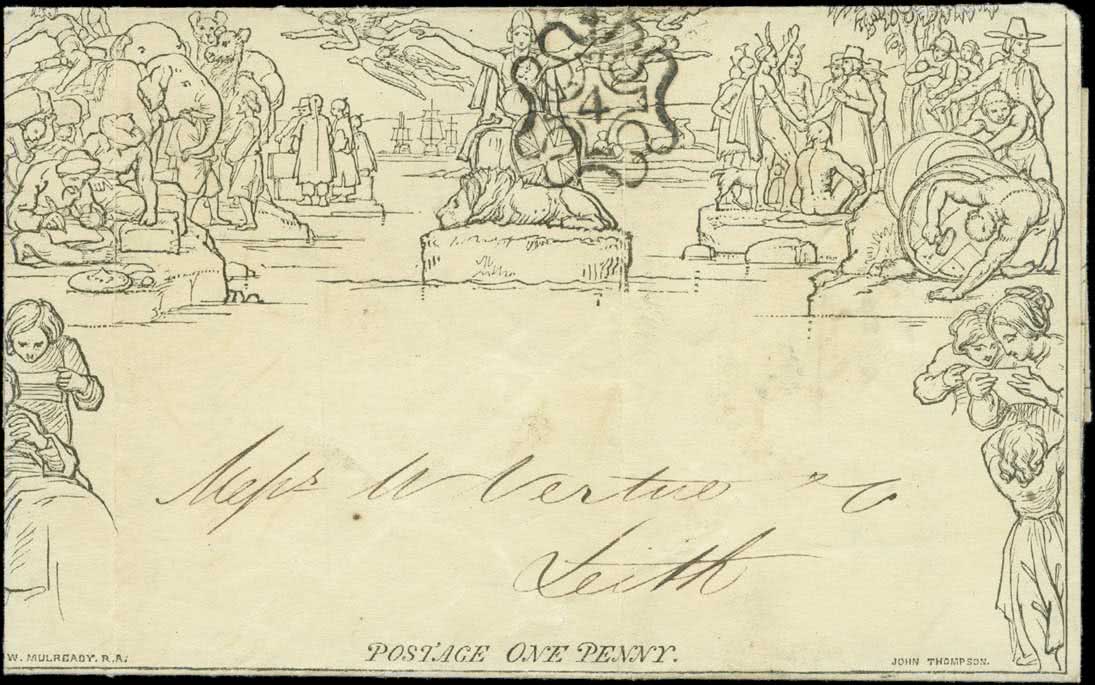 4
Messrs W Vertue & Co
Leith
POSTAGE ONE PENNY.
W. MULREADY. R.A.
JOHN THOMPSON.